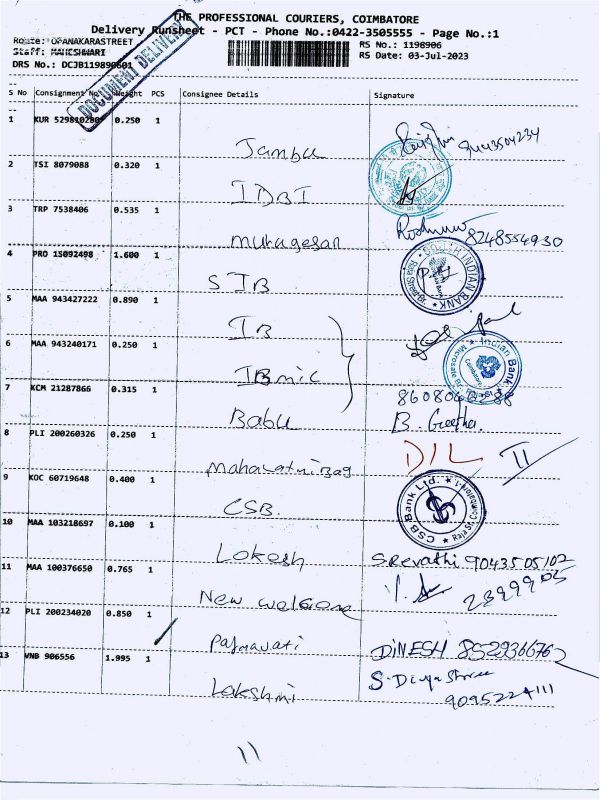 THE PROFESSIONAL COURIERS, COIMBATORE
Delivery Runsheet - PCT - Phone No.:0422-3505555 - Page No.:1
Route: OPANAKARASTREET
RS No.: 1198906
Staff: MAHESHWARI
RS Date: 03-Jul-2023
DRS No.: DCJB119890601
DOCUMENT DELIVERY
S No Consignment No. Weight PCS Consignee Details Signature
1 KUR 529810280 0.250 1 Jambu 9443504234
2 TSI 8079088 0.320 1 IDBI
3 TRP 7538406 0.535 1 Murugesan 8248554930
4 PRO 15092498 1.600 1 SIB
SOUTH INDIAN BANK
5 MAA 943427222 0.890 1 IB
6 MAA 943240171 0.250 1 IBmic
Indian Bank
7 KCM 21287866 0.315 1 Babu B. Geetha.
8 PLI 200260326 0.250 1 D/L II
9 KOC 60719648 0.400 1 CSB
CSB Bank Ltd.
10 MAA 103218697 0.100 1 Lokesh S.Revathi 9043505102
11 MAA 100376650 0.765 1 New welcome
12 PLI 200234020 0.850 1 DINESH
13 VNB 906556 1.995 1 Lakshmi 9095224111
11